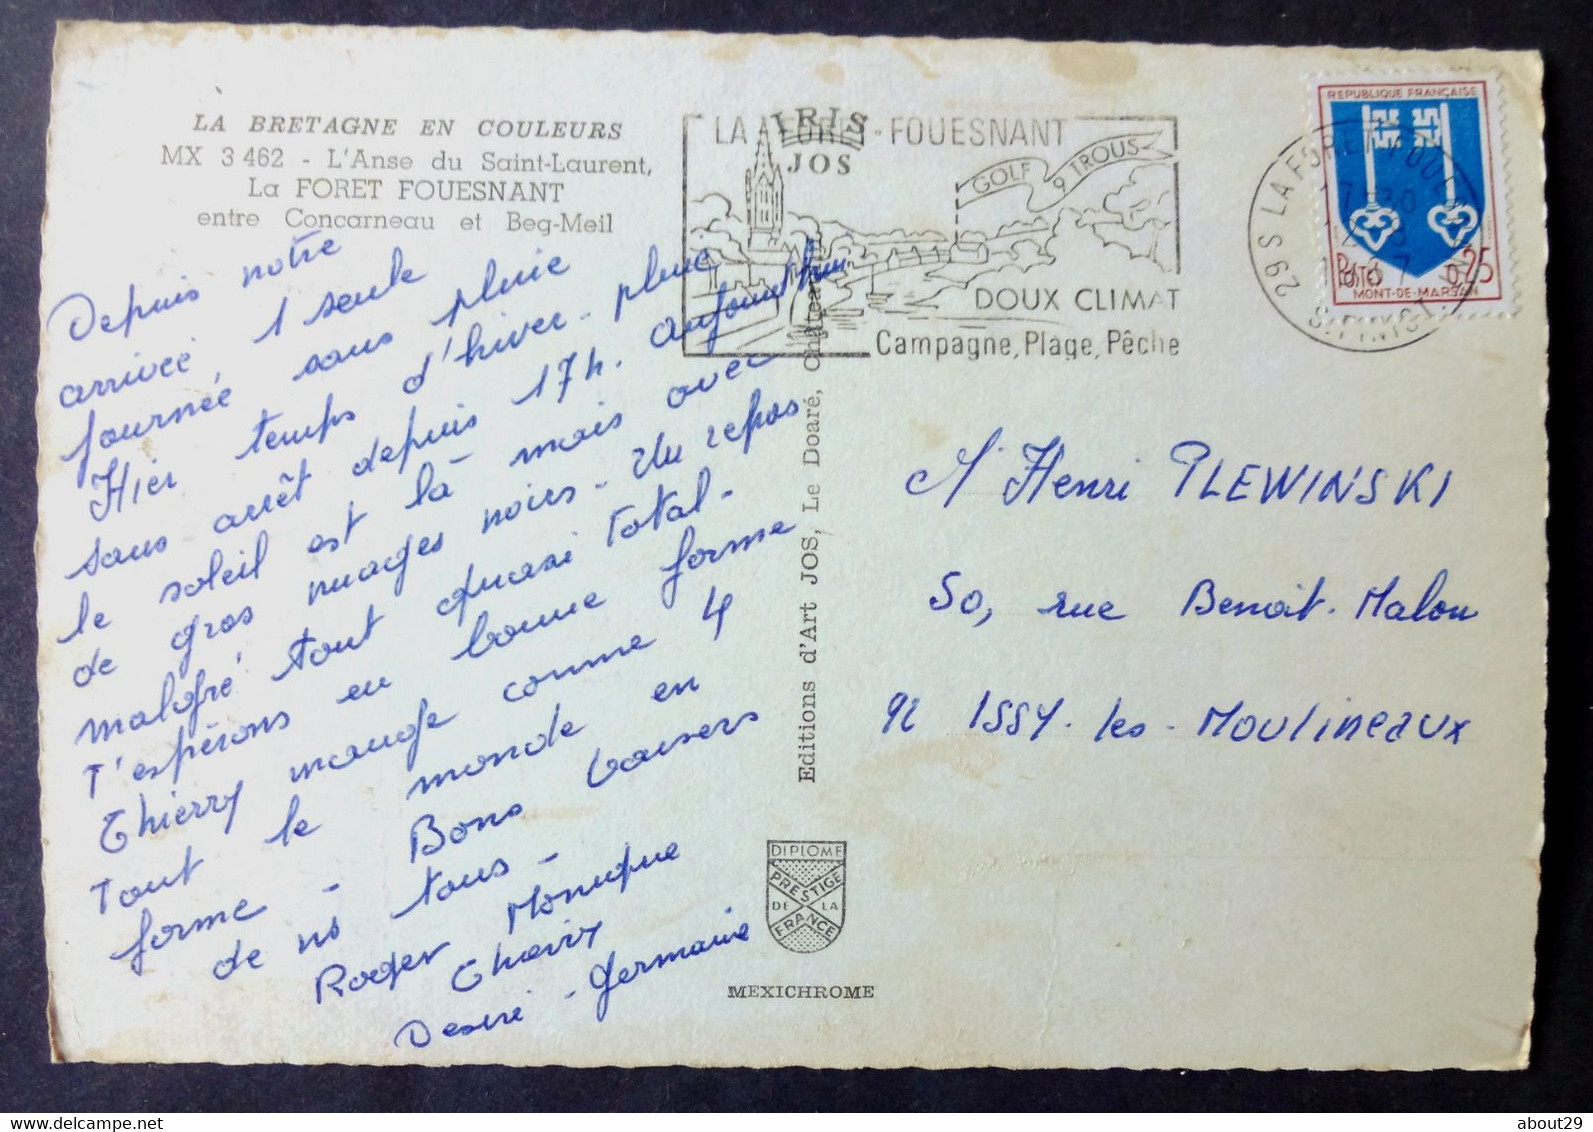 LA BRETAGNE EN COULEURS
MX 3 462 - L'Anse du Saint-Laurent,
La FORET FOUESNANT
entre Concarneau et Beg-Meil
IRIS
JOS
LA FORET-FOUESNANT
GOLF 9 TROUS
DOUX CLIMAT
Campagne, Plage, Pêche
29S LA FORET FOUESNANT
S. FINIST
REPUBLIQUE FRANÇAISE
POSTES
0,25
MONT-DE-MARSAN
Depuis notre
arrivée, 1 seule
journée sans pluie
Hier temps d'hiver - pluie
sans arrêt depuis 17h. aujourd'hui
le soleil est là mais avec
de gros nuages noirs - Un repos
malgré tout quasi total -
T'espérons en bonne forme
Thierry mange comme 4
Tout le monde en
forme - Bons baisers
de ns tous -
Roger Monique
Thierry
Desiré - Germaine
M. Henri PLEWINSKI
50, rue Benoît-Malon
92 ISSY-les-Moulineaux
Editions d'Art JOS, Le Doaré, Châteaulin
DIPLOME
PRESTIGE
DE LA
FRANCE
MEXICHROME
delcampe.net
about29